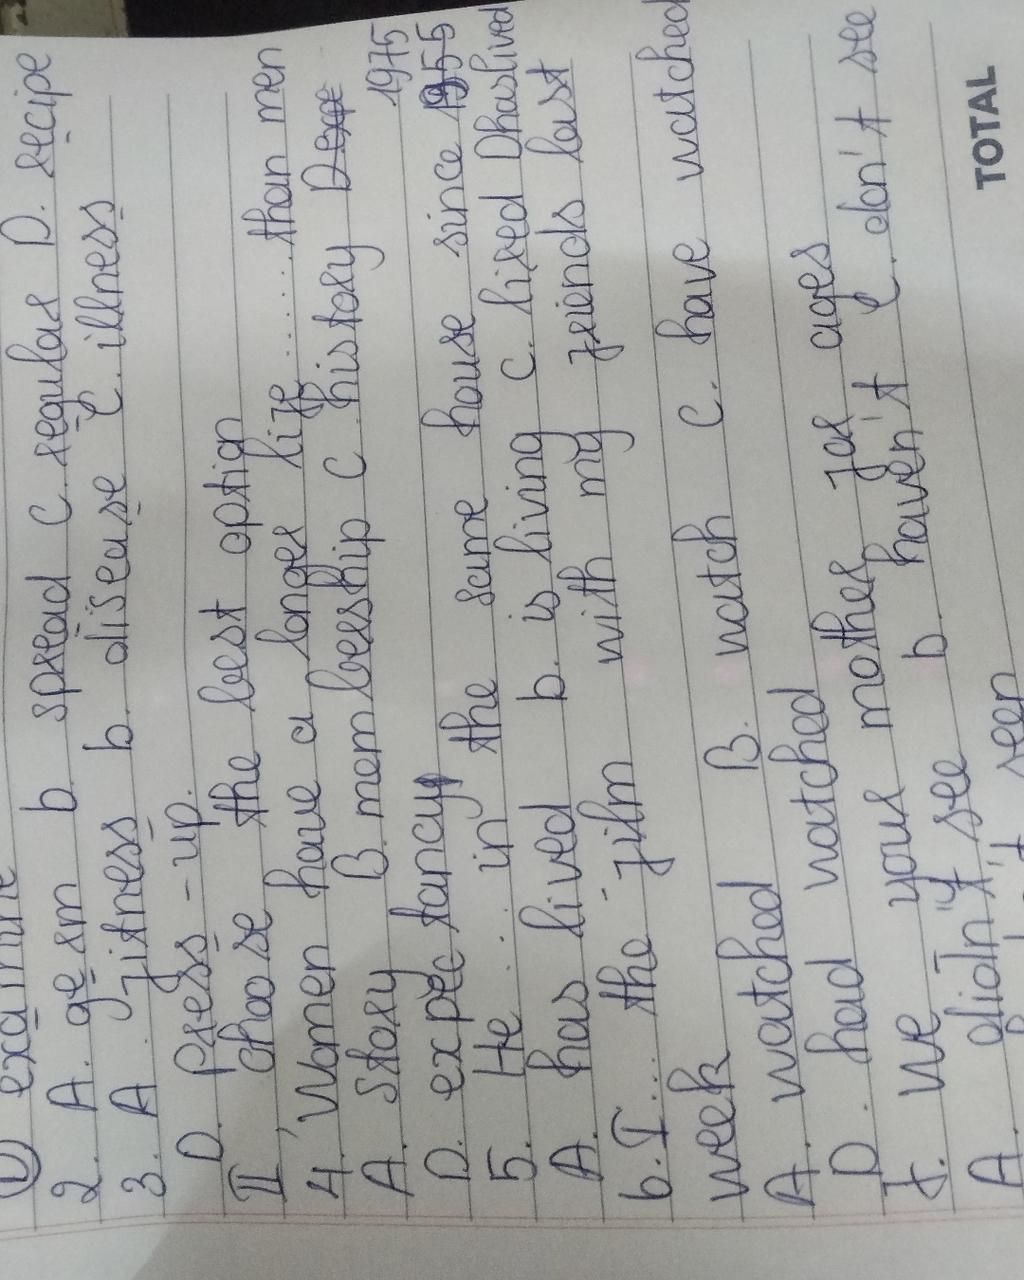 D examine
2. A. germ b. spread C. regular D. recipe
3. A. fitness b. disease C. illness
D. press-up.
II, choose the best option
4. Women have a longer life.......than men
A. story B. membership C history
D. expectancy 1975
5. He... in the same house since 1955
A. has lived b. is living C. lived D haslived
6. I... the film with my friends last
week
A. watched B. watch C. have watched
D. had watched
7. We ... your mother for ages
A. didn't see b. haven't C. don't see
seen
TOTAL